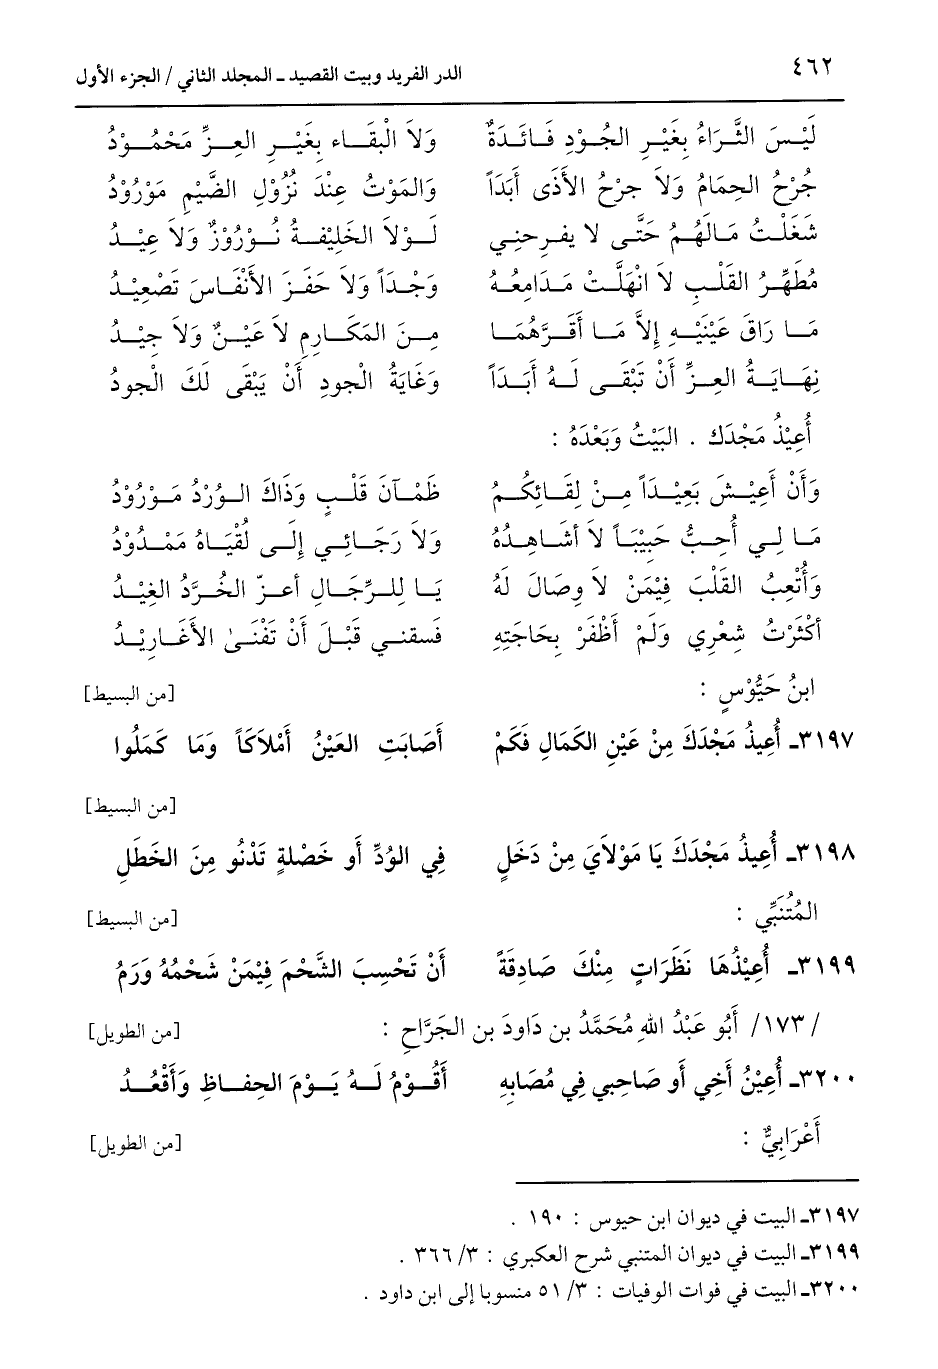 ٤٦٢
الدر الفريد وبيت القصيد ـ المجلد الثاني / الجزء الأول
لَيْسَ الثَّرَاءُ بِغَيْرِ الجُوْدِ فَائَدَةٌ وَلاَ الْبَقَاء بِغَيْرِ العِزِّ مَحْمُوْدُ
جُرْحُ الحِمَامُ وَلاَ جرْحُ الأَذَى أَبَدَاً وَالمَوْتُ عِنْدَ نُزُوْلِ الضَّيْمِ مَوْرُوْدُ
شَغَلْتُ مَالَهُمُ حَتَّى لا يفرحنِي لَوْلاَ الخَلِيْفَةُ نُوْرُوْزٌ وَلاَ عِيْدُ
مُطَهِّرُ القَلْبِ لاَ انْهَلَّتْ مَدَامِعُهُ وَجْدَاً وَلاَ حَفَزَ الأَنْفَاسَ تَصْعِيْدُ
مَا رَاقَ عَيْنَيْهِ إلاَّ مَا أَقَرَّهُمَا مِنَ المَكَارِمِ لاَ عَيْنٌ وَلاَ جِيْدُ
نِهَايَةُ العِزِّ أَنْ تَبْقَى لَهُ أَبَدَاً وَغَايَةُ الْجودِ أَنْ يَبْقَى لَكَ الْجودُ
أُعِيْذُ مَجْدَكَ . البَيْتُ وَبَعْدَهُ :
وَأَنْ أَعِيْشَ بَعِيْدَاً مِنْ لِقَائِكُمُ ظَمْآنَ قَلْبٍ وَذَاكَ الوُرْدُ مَوْرُوْدُ
مَا لِي أُحِبُّ حَبِيْبَاً لاَ أشَاهِدُهُ وَلاَ رَجَائِي إِلَى لُقْيَاهُ مَمْدُوْدُ
وَأُتْعِبُ القَلْبَ فِيْمَنْ لاَ وِصَالَ لَهُ يَا لِلرِّجَالِ أعزّ الخُرَّدُ الغِيْدُ
أكْثَرْتُ شِعْرِي وَلَمْ أَظْفَرْ بِحَاجَتِهِ فَسقني قَبْلَ أَنْ تَفْنَىٰ الأَغَارِيْدُ
ابنُ حَيُّوْسٍ : [من البسيط]
٣١٩٧ـ أُعِيذُ مَجْدَكَ مِنْ عَيْنِ الكَمَالِ فَكَمْ أَصَابَتِ العَيْنُ أَمْلاَكَاً وَمَا كَمَلُوا
[من البسيط]
٣١٩٨ـ أُعِيذُ مَجْدَكَ يَا مَوْلاَيَ مِنْ دَخَلٍ فِي الوُدِّ أَو خَصْلةٍ تَدْنُو مِنَ الخَطَلِ
المُتَنَبِّي : [من البسيط]
٣١٩٩ـ أُعِيْذُهَا نَظَرَاتٍ مِنْكَ صَادِقَةً أَنْ تَحْسِبَ الشَّحْمَ فِيْمَنْ شَحْمُهُ وَرَمُ
/ ١٧٣/ أَبُو عَبْدُ اللهِ مُحَمَّدُ بن دَاودَ بن الجَرَّاحِ : [من الطويل]
٣٢٠٠ـ أُعِيْنُ أَخِي أَو صَاحِبي فِي مُصَابِهِ أَقُوْمُ لَهُ يَوْمَ الحِفَاظِ وَأَقْعُدُ
أَعْرَابِيٌّ : [من الطويل]
٣١٩٧ـ البيت في ديوان ابن حيوس : ١٩٠ .
٣١٩٩ـ البيت في ديوان المتنبي شرح العكبري : ٣/ ٣٦٦ .
٣٢٠٠ـ البيت في فوات الوفيات : ٣/ ٥١ منسوبا إلى ابن داود .